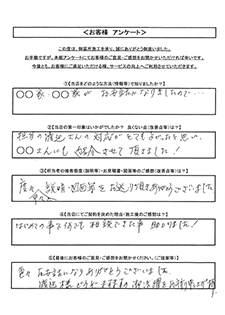 ＜お客様 アンケート＞
この度は、御葬所施工を承り、誠にありがとう御座いました。
お手数ですが、本紙アンケートにてお客様のご意見・ご感想をお聞かせいただければ幸いです。
今後とも、お客様にご満足いただける様、サービスの向上へご利用させていただきます。
①【当店をどのような方法（情報等）で知りましたか？】
○○家・○○家が お世話になりましたので…
②【当店の第一印象はいかがでしたか？ 良くない点（改善点等）は？】
担当の渡辺さんの対応がとてもよかったと思い、
○○さんにも 紹介させて頂きました！
③【担当者の接客態度（説明等）・お見積書・図面等のご感想（改善点等）は？】
度々 説明・図面等をお送り頂きありがとうございました
④【当店にてご契約を決めた理由・施工後のご感想は？】
はじめての事で何でも相談できた事 助かりました！
⑤【最後にお客様のご意見・ご感想をお聞かせください。（ご提案等）】
色々 お世話になりありがとうございました。